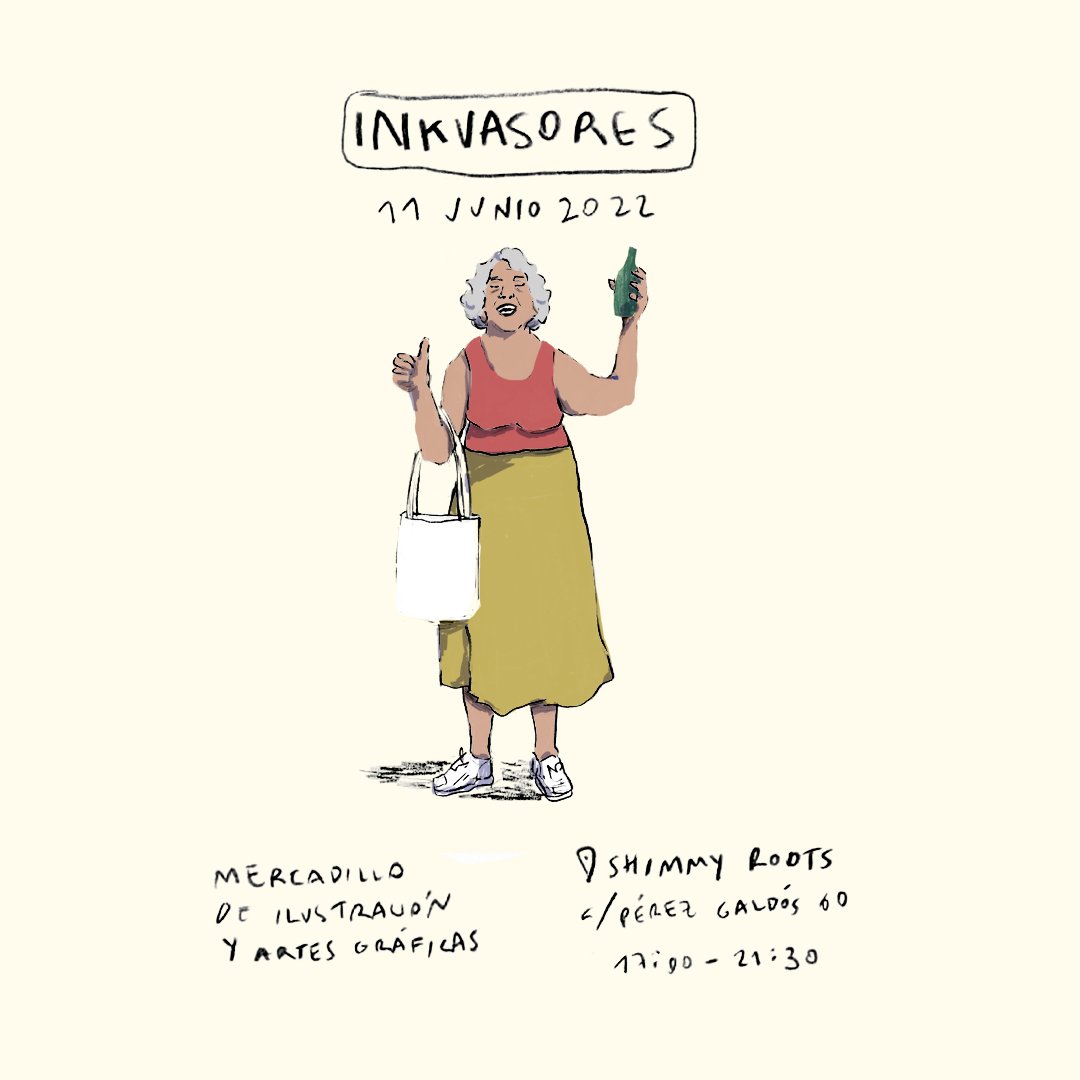 INKVASORES
11 JUNIO 2022
MERCADILLO
DE ILUSTRACIÓN
Y ARTES GRÁFICAS
SHIMMY ROOTS
C/PÉREZ GALDÓS 60
17:00 - 21:30